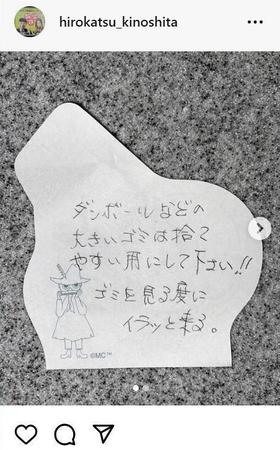 hirokatsu_kinoshita
ダンボールなどの
大きいゴミは捨て
やすい用にして下さい!!
ゴミを見る度に
イラッと来る。
©MC™